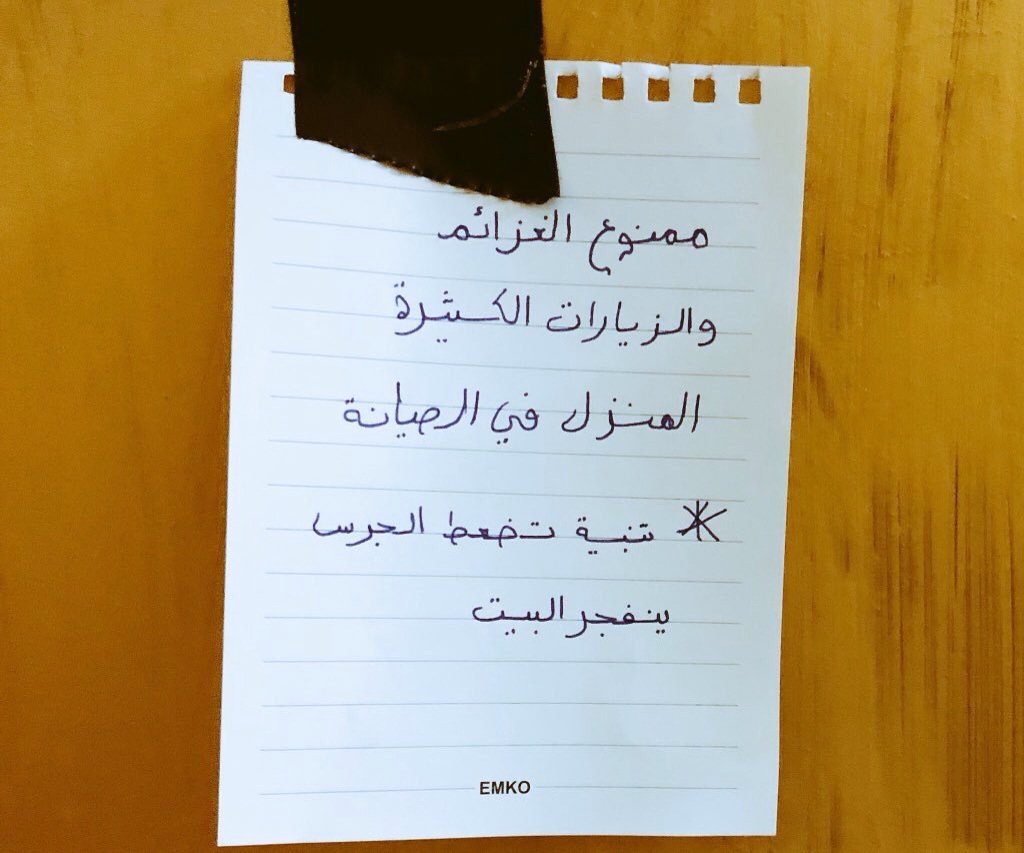 ممنوع الغزائم
والزيارات الكثيرة
المنزل في الصيانة
* تنبية تضعط الجرس
ينفجر البيت
EMKO